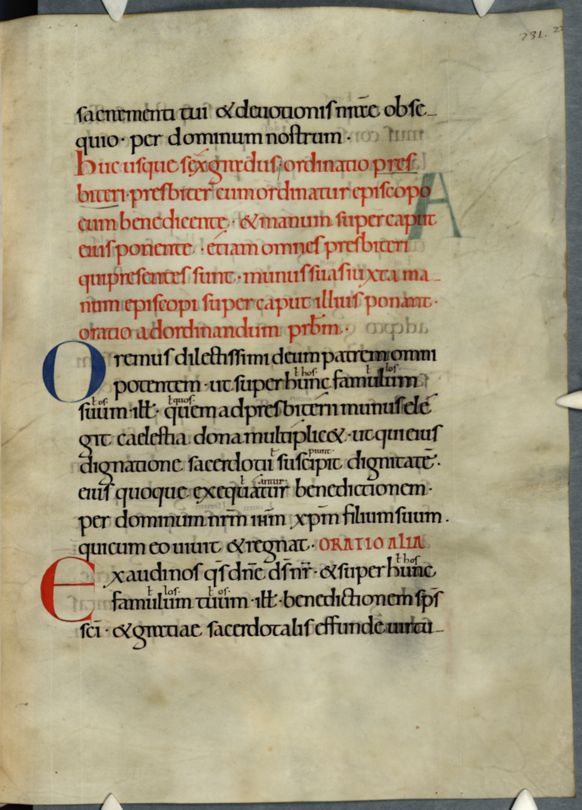 231.
sacramenti tui & deuotionis nr̄ae obse
quio · per dominum nostrum ·
huc usque sex gradus · ordinatio pres
biteri · presbiter cum ordinatur episcopo
eum benedicente · & manum super caput
eius ponente · etiam omnes presbiteri
qui presentes sunt · manus suas iuxta ma
num episcopi super caput illius ponant ·
oratio ad ordinandum prb̄m ·
Oremus dilectissimi deum patrem omni
ł hos ł los
potentem · ut super hunc famulum
ł os ł quos
suum iłł · quem ad presbiterii munus ele
git caelestia dona multiplic& · ut qui eius
piunt
dignatione sacerdotii suscipit dignitatē ·
ł antur
eius quoque exequatur benedictionem ·
per dominum nr̄m ih̄m xp̄m filium suum ·
qui cum eo uiuit & regnat · ORATIO ALIA
ł hos
Exaudi nos qs̄ dn̄e ds̄ nr̄ · & super hunc
ł los ł os
famulum tuum · iłł · benedictionem sp̄s
sc̄i · & gratiae sacerdotalis effunde uirtu